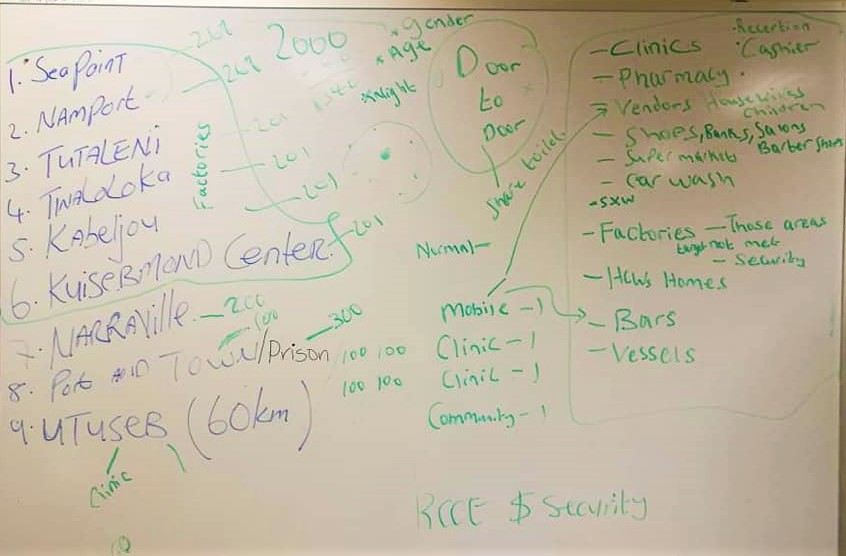 1. SeaPoint
2. NAMPort
3. TUTALENI
4. TWALOLOKA
5. Kabeljou
6. KUISEBMOND Center
7. NARRAVille - 200
8. Port AND TOWN/Prison
100
300
9. UTUSEB (60km)
Clinic
10
Factories
201
201
201
201
2000
* Gender
* Age
* Night
Door
to
Door
Share toilet
100 100
100 100
Normal -
Mobile - 1
Clinic - 1
Clinic - 1
Community - 1
RCCE $ Security
- Clinics
• Reception
• Cashier
- Pharmacy
- Vendors Housewives
Children
- Shops, Banks, Salons
Barber Shops
- Super markets
- Car wash
- SXW
- Factories - Those areas
target not met
- Security
- HCWs Homes
- Bars
- Vessels